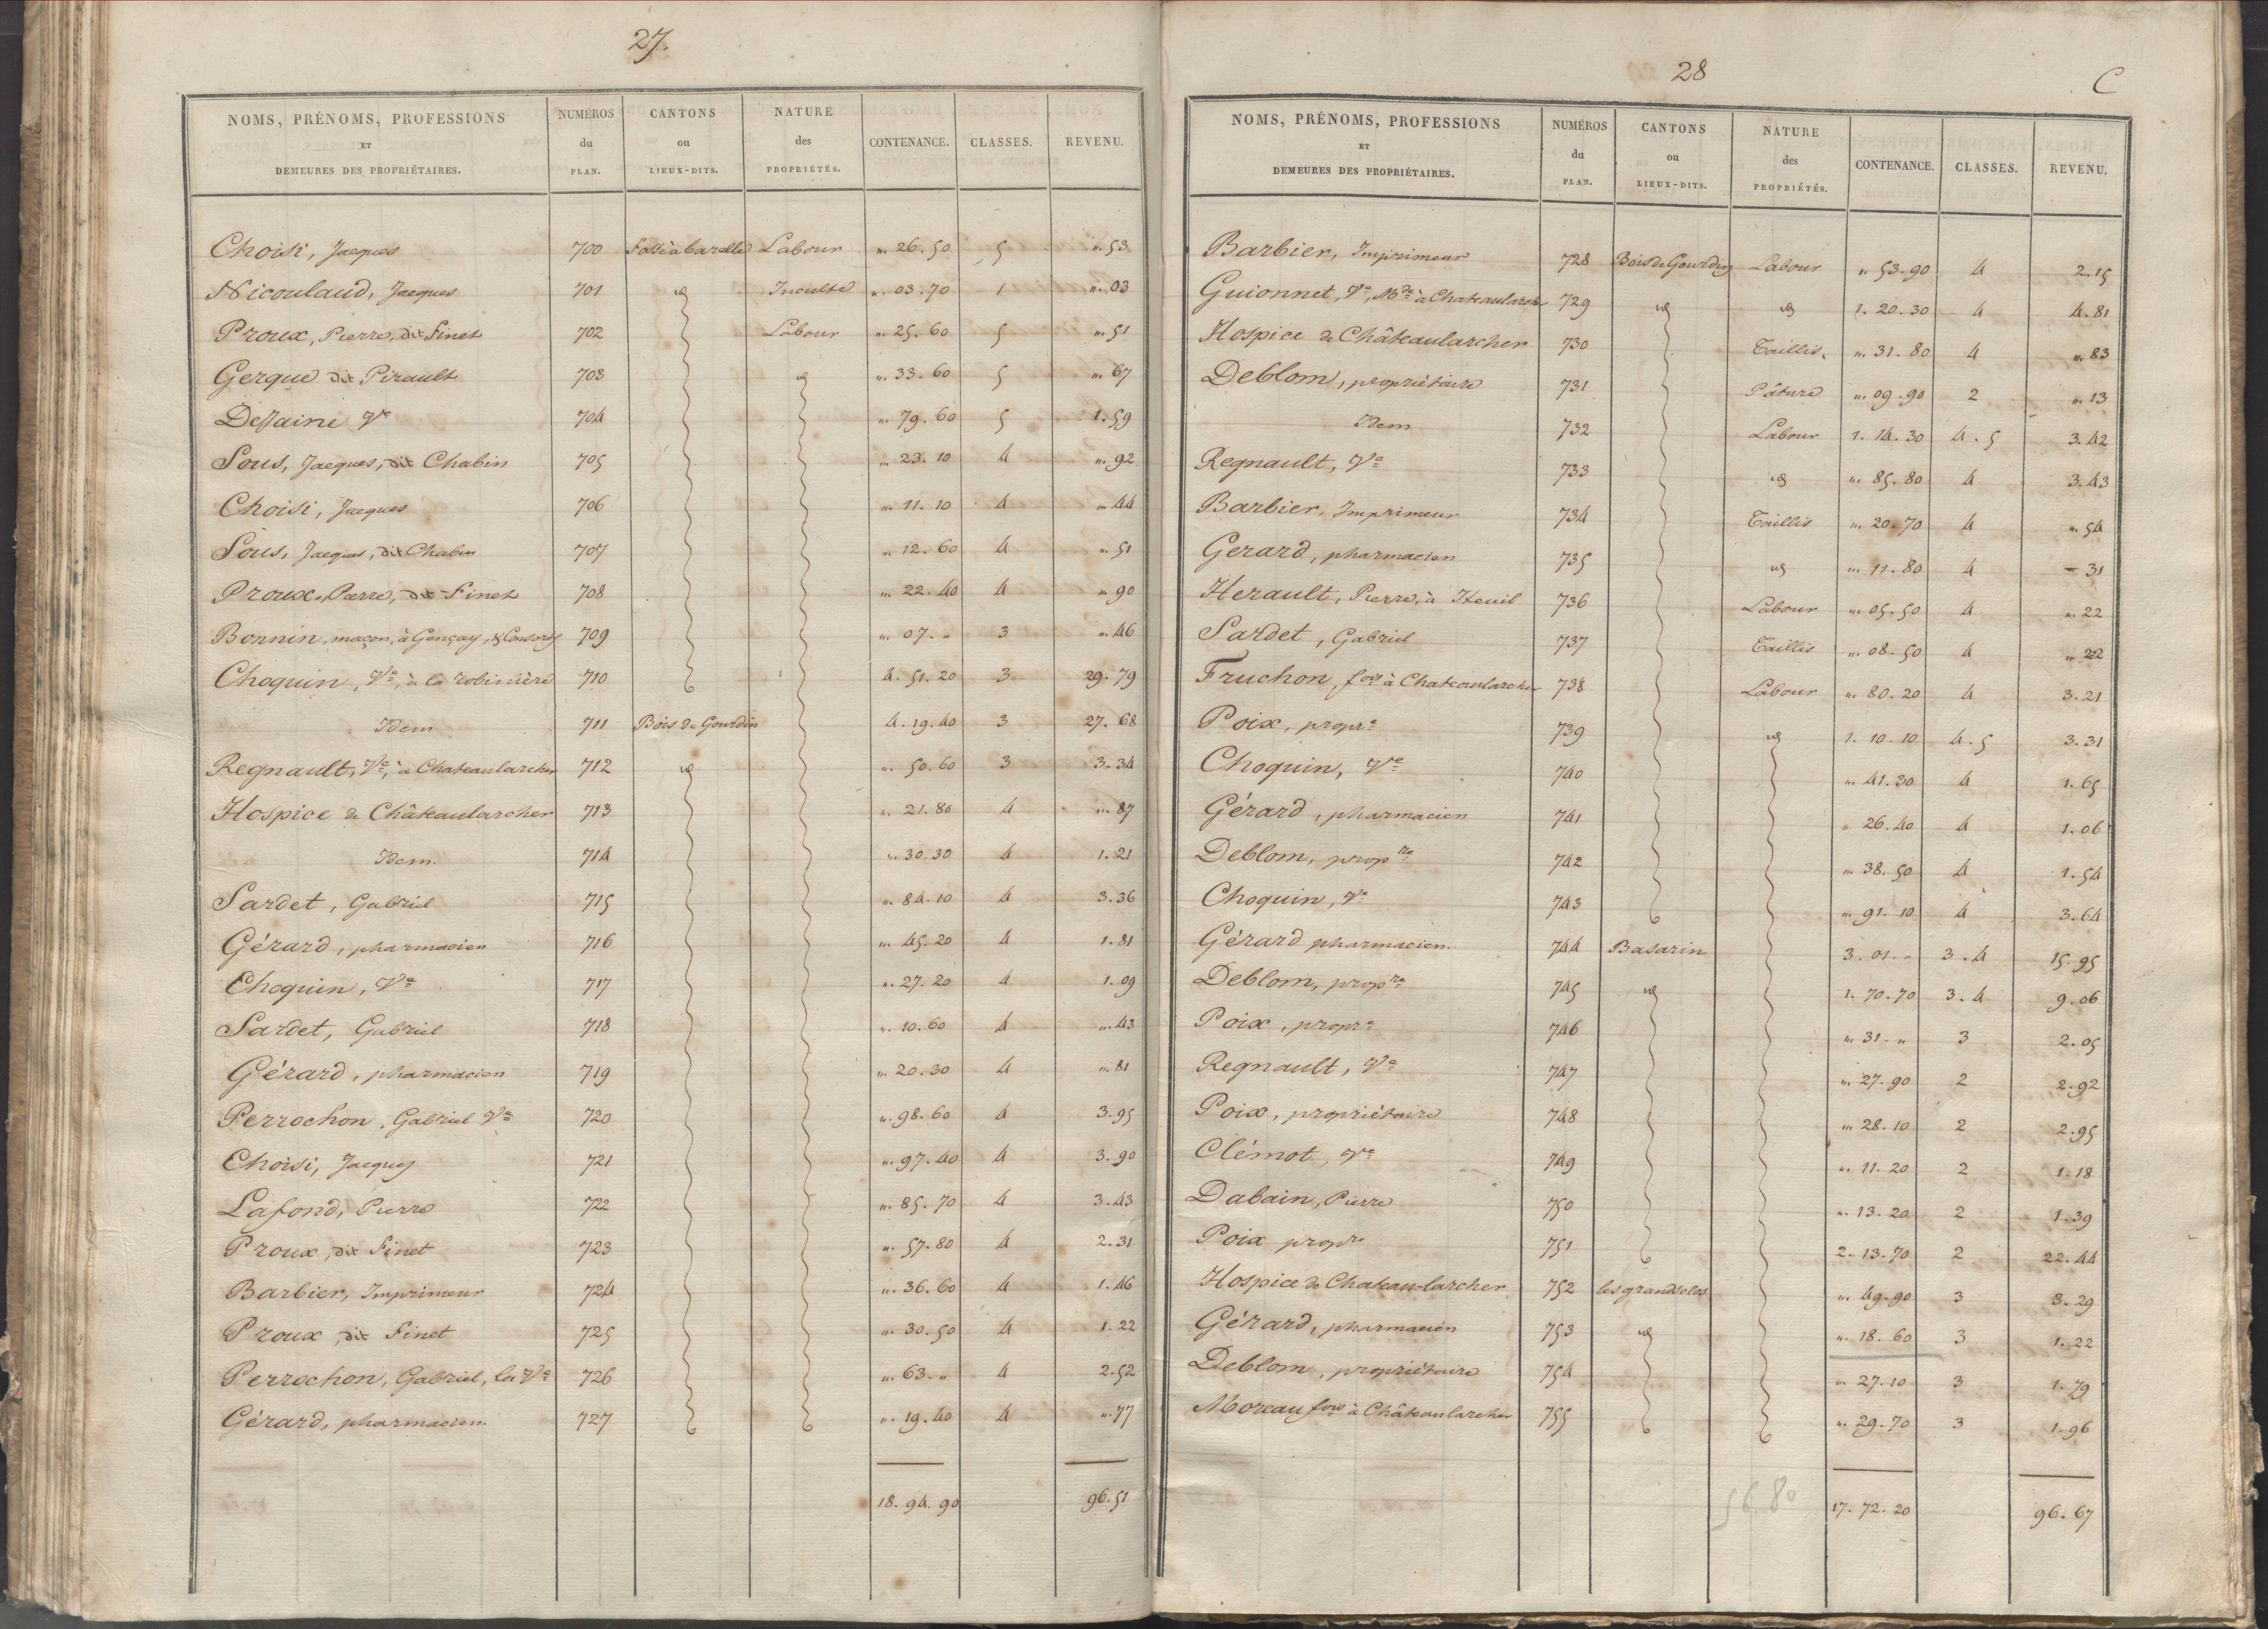 27.
NOMS, PRÉNOMS, PROFESSIONS ET DEMEURES DES PROPRIÉTAIRES. NUMÉROS du PLAN. CANTONS ou LIEUX-DITS. NATURE des PROPRIÉTÉS. CONTENANCE. CLASSES. REVENU.
Choisi, Jacques 700 Fosse à baralle Labour „. 26. 50 5 „. 53
Nicoulaud, Jacques 701 id Inculte „. 03. 70 1 „. 03
Proux, Pierre, dit Finet 702 Labour „. 25. 60 5 „. 51
Gergue dit Pirault 703 id „. 33. 60 5 „. 67
Dessaine Ve 704 „. 79. 60 5 1. 59
Sous, Jacques, dit Chabin 705 „. 23. 10 4 „. 92
Choisi, Jacques 706 „. 11. 10 4 „. 44
Sous, Jacques, dit Chabin 707 „. 12. 60 4 „. 51
Proux, Pierre, dit Finet 708 „. 22. 40 4 „. 90
Bonnin, maçon, à Gençay, & Consorts 709 „. 07. „ 3 „. 46
Choquin, Ve, à la robinière 710 4. 51. 20 3 29. 79
Idem 711 Bois de Gourdin 4. 19. 40 3 27. 68
Regnault, Ve, à Chateaularcher 712 id „. 50. 60 3 3. 34
Hospice de Châteaularcher 713 „. 21. 80 4 „. 87
Idem. 714 „. 30. 30 4 1. 21
Sardet, Gabriel 715 „. 84. 10 4 3. 36
Gérard, pharmacien 716 „. 45. 20 4 1. 81
Choquin, Ve 717 „. 27. 20 4 1. 09
Sardet, Gabriel 718 „. 10. 60 4 „. 43
Gérard, pharmacien 719 „. 20. 30 4 „. 81
Perrochon, Gabriel Ve 720 „. 98. 60 4 3. 95
Choisi, Jacques 721 „. 97. 40 4 3. 90
Lafond, Pierre 722 „. 85. 70 4 3. 43
Proux, dit Finet 723 „. 57. 80 4 2. 31
Barbier, Imprimeur 724 „. 36. 60 4 1. 46
Proux, dit Finet 725 „. 30. 50 4 1. 22
Perrochon, Gabriel, la Ve 726 „. 63. „ 4 2. 52
Gérard, pharmacien. 727 „. 19. 40 4 „. 77
18. 94. 90 96. 51
28
C
NOMS, PRÉNOMS, PROFESSIONS ET DEMEURES DES PROPRIÉTAIRES. NUMÉROS du PLAN. CANTONS ou LIEUX-DITS. NATURE des PROPRIÉTÉS. CONTENANCE. CLASSES. REVENU.
Barbier, Imprimeur 728 Bois de Gourdin Labour „. 53. 90 4 2. 15
Guionnet, Ve, Mde à Chateaularcher 729 id id 1. 20. 30 4 4. 81
Hospice de Châteaularcher 730 Taillis. „. 31. 80 4 „. 83
Deblom, propriétaire 731 Pâture „. 09. 90 2 „. 13
Idem 732 Labour 1. 14. 30 4. 5 3. 42
Regnault, Ve 733 id „. 85. 80 4 3. 43
Barbier, Imprimeur 734 Taillis „. 20. 70 4 „. 54
Gerard, pharmacien 735 id „. 11. 80 4 – 31
Herault, Pierre, à Iteuil 736 Labour „. 05. 50 4 „. 22
Sardet, Gabriel 737 Taillis „. 08. 50 4 „. 22
Fruchon, fois à Chateaularcher 738 Labour „. 80. 20 4 3. 21
Poix, propre 739 id 1. 10. 10 4. 5 3. 31
Choquin, Ve 740 „. 41. 30 4 1. 65
Gérard, pharmacien 741 „. 26. 40 4 1. 06
Deblom, propre 742 „. 38. 50 4 1. 54
Choquin, Ve 743 „. 91. 10 4 3. 64
Gérard pharmacien. 744 Basarin 3. 01. „ 3. 4 15. 95
Deblom, propre 745 id 1. 70. 70 3. 4 9. 06
Poix, propre 746 „. 31. „ 3 2. 05
Regnault, Ve 747 „. 27. 90 2 2. 92
Poix, propriétaire 748 „. 28. 10 2 2. 95
Clémot, Ve 749 „. 11. 20 2 1. 18
Dabain, Pierre 750 „. 13. 20 2 1. 39
Poix propre 751 2. 13. 70 2 22. 44
Hospice de Chateau-larcher 752 les grands clos „. 49. 90 3 3. 29
Gérard, pharmacien 753 id „. 18. 60 3 1. 22
Deblom, propriétaire 754 „. 27. 10 3 1. 79
Moreau fois à Châteaularcher 755 „. 29. 70 3 1. 96
56. 80 17. 72. 20 96. 67